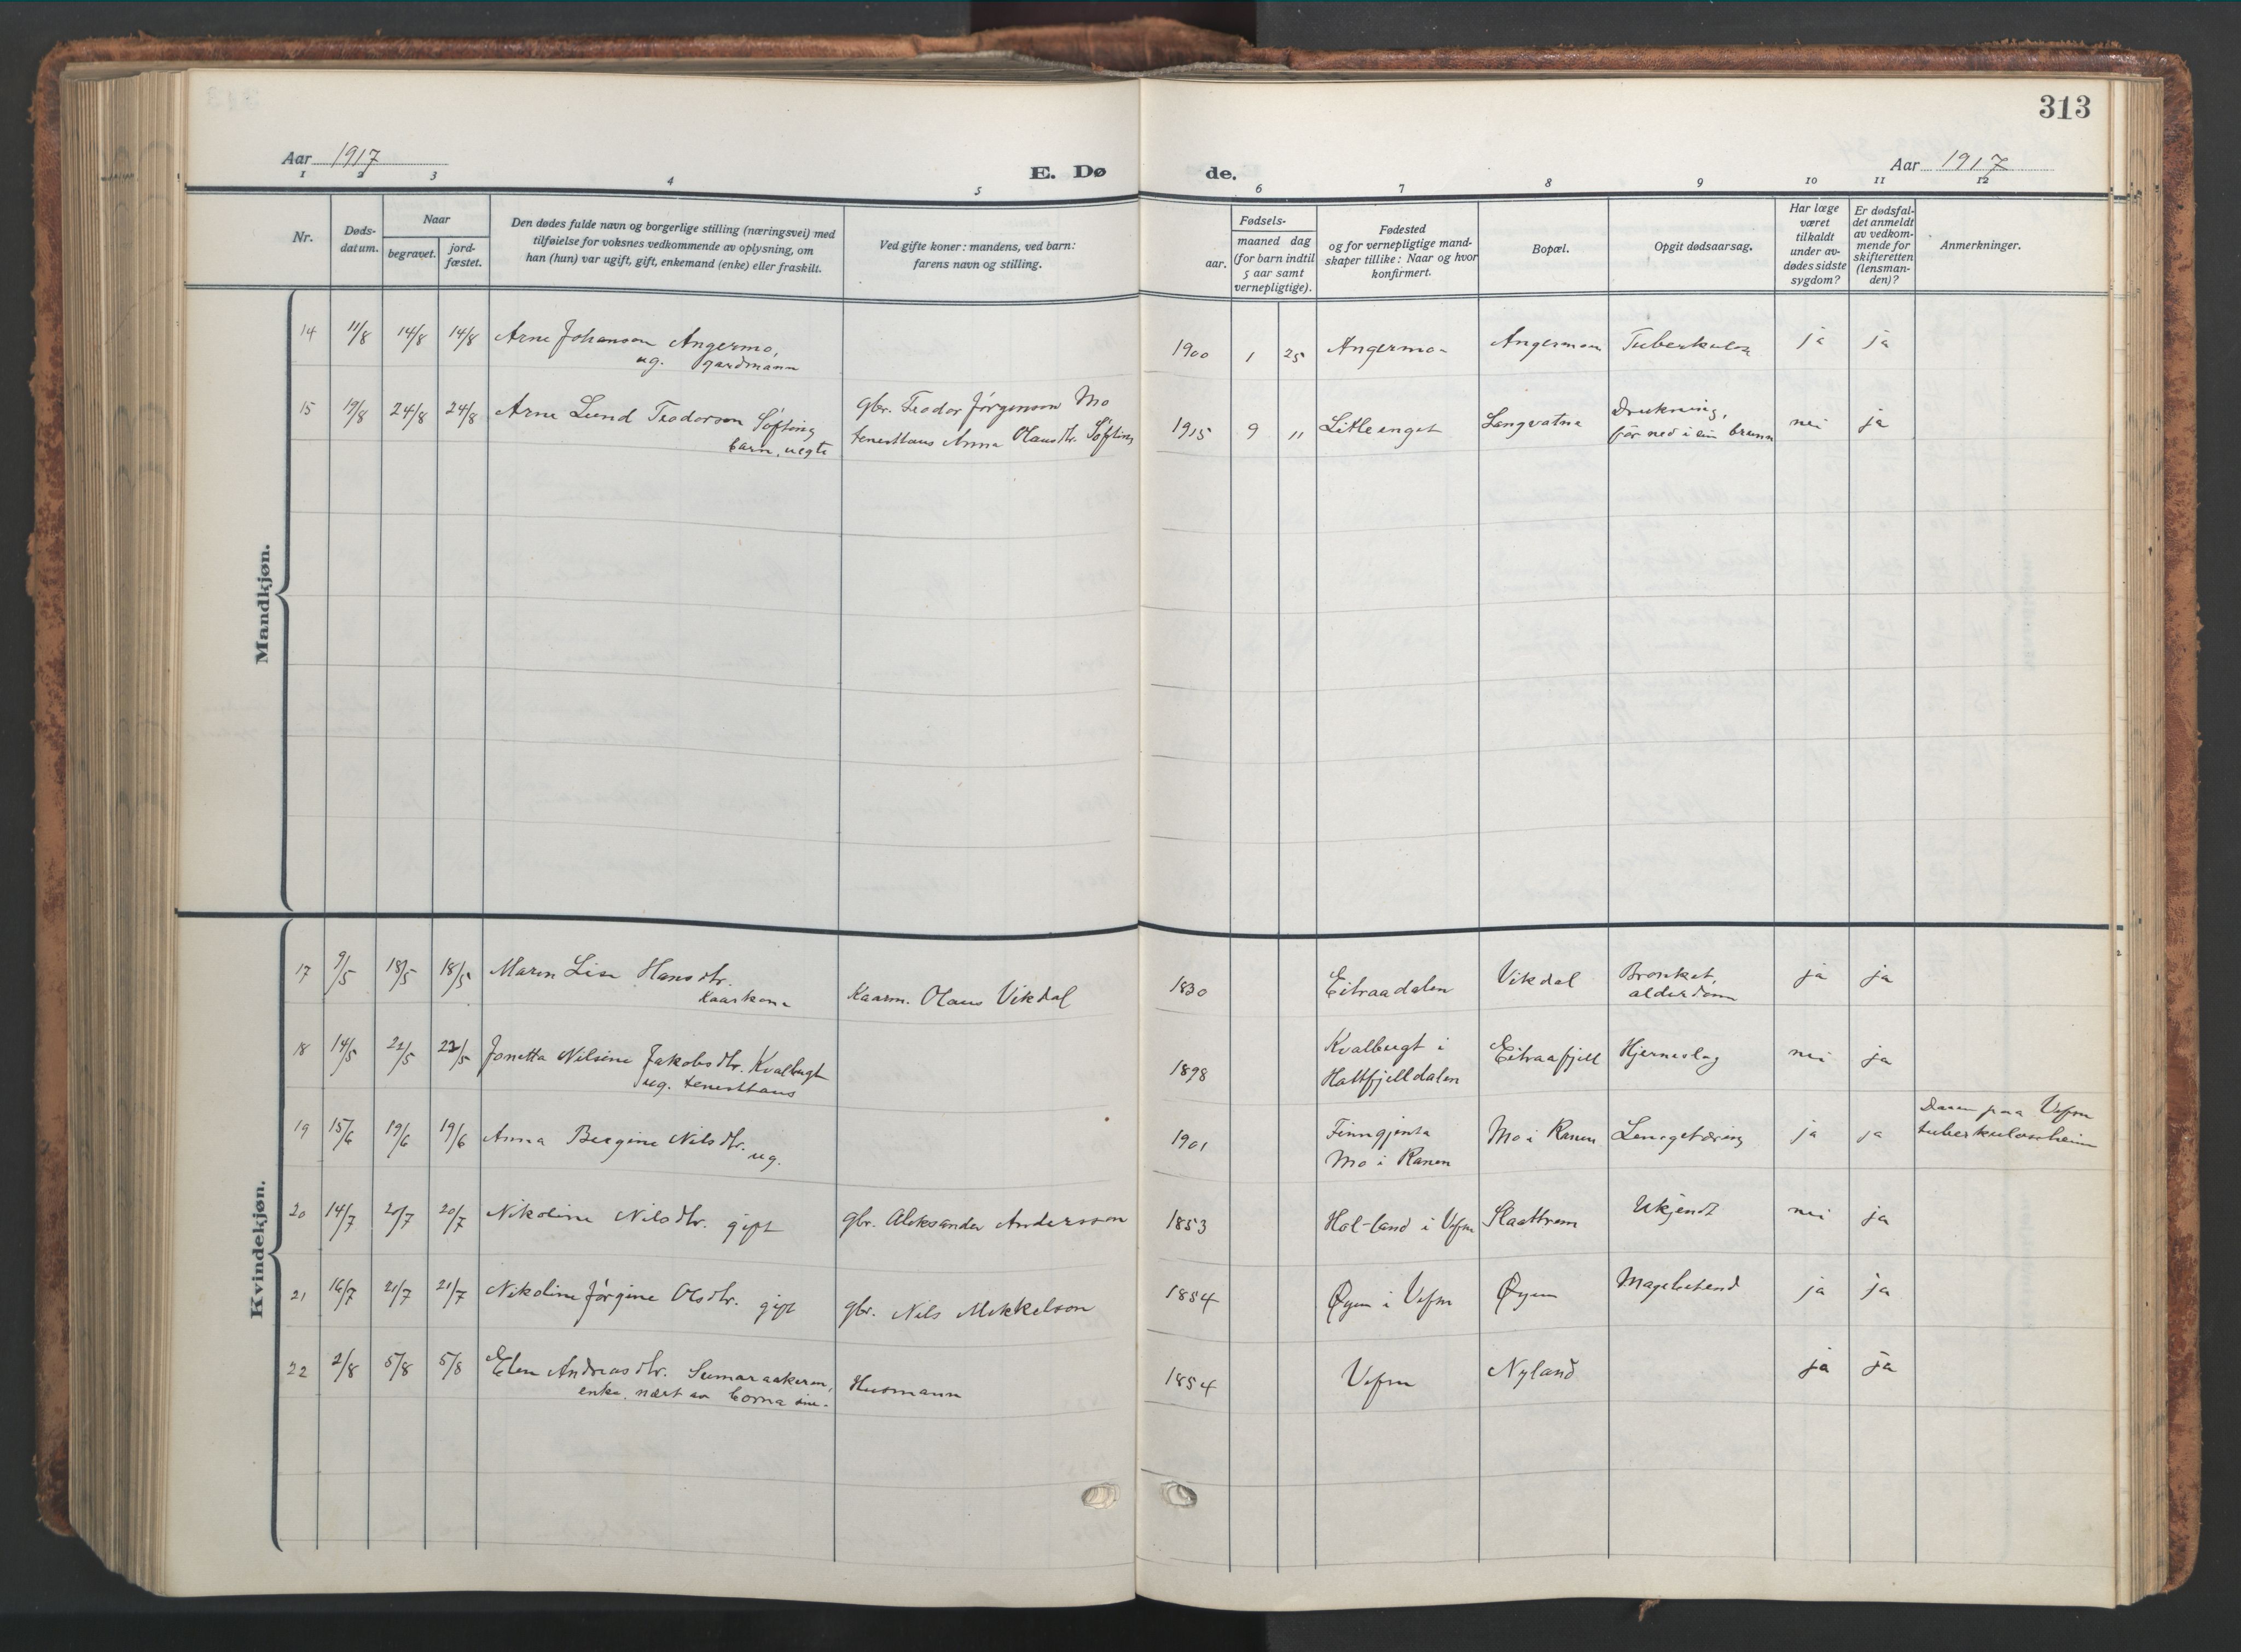 313
Aar 1917
E. Dø
de.
Aar 1917
1 2 3 4 5 6 7 8 9 10 11 12
Nr.
Døds-
datum.
Naar
begravet.
jord-
fæstet.
Den dødes fulde navn og borgerlige stilling (næringsvei) med
tilføielse for voksnes vedkommende av oplysning, om
han (hun) var ugift, gift, enkemand (enke) eller fraskilt.
Ved gifte koner: mandens, ved barn:
farens navn og stilling.
Fødsels-
aar.
maaned dag
(for barn indtil
5 aar samt
vernepligtige).
Fødested
og for vernepligtige mand-
skaper tillike: Naar og hvor
konfirmert.
Bopæl.
Opgit dødsaarsag.
Har læge
været
tilkaldt
under av-
dødes sidste
sygdom?
Er dødsfal-
det anmeldt
av vedkom-
mende for
skifteretten
(lensman-
den)?
Anmerkninger.
Mandkjøn.
14 11/8 14/8 14/8 Arne Johanson Angermo,
ug. gardmann
1900 1 25 Angermo Angermoen Tuberkulose ja ja
15 19/8 24/8 24/8 Arne Lund Teodorson Søfting
barn, uegte
gbr. Teodor Jørgenson Mo
tenesttaus Anna Olausdtr. Søfting
1915 9 11 Litleenget Langvatne Drukning,
før ned i ein brunn
nei ja
Kvindekjøn.
17 9/5 18/5 18/5 Maren Lisa Hansdtr.
Kaarkona
Kaarm. Olaus Vikdal
1830 Eitraadalen Vikdal Bronkit,
alderdom
ja ja
18 14/5 22/5 22/5 Jonetta Nilsine Jakobsdtr. Kvalbugt
ug. tenesttaus
1898 Kvalbugt i
Hattfjelldalen
Eitraafjell Hjerneslag nei ja
19 15/6 19/6 19/6 Anna Bergine Nilsdtr.
ug.
1901 Finngjenta
Mo i Ranen
Mo i Ranen Lungetæring ja ja
paa Vefsn
tuberkuloseheim
20 14/7 20/7 20/7 Nikoline Nilsdtr. gift gbr. Aleksander Andersson
1853 Hol-land i Vefsn Slaattrem Ukjendt nei ja
21 16/7 21/7 21/7 Nikoline Jørgine Olsdtr. gift gbr. Nils Mikkelson
1854 Øyum i Vefsn Øyum Magebetend ja ja
22 2/8 5/8 5/8 Elen Andreasdtr. Sumaraakeren,
enke, nært av borna sine.
Husmann
1854 Vefsn Nyland ja ja